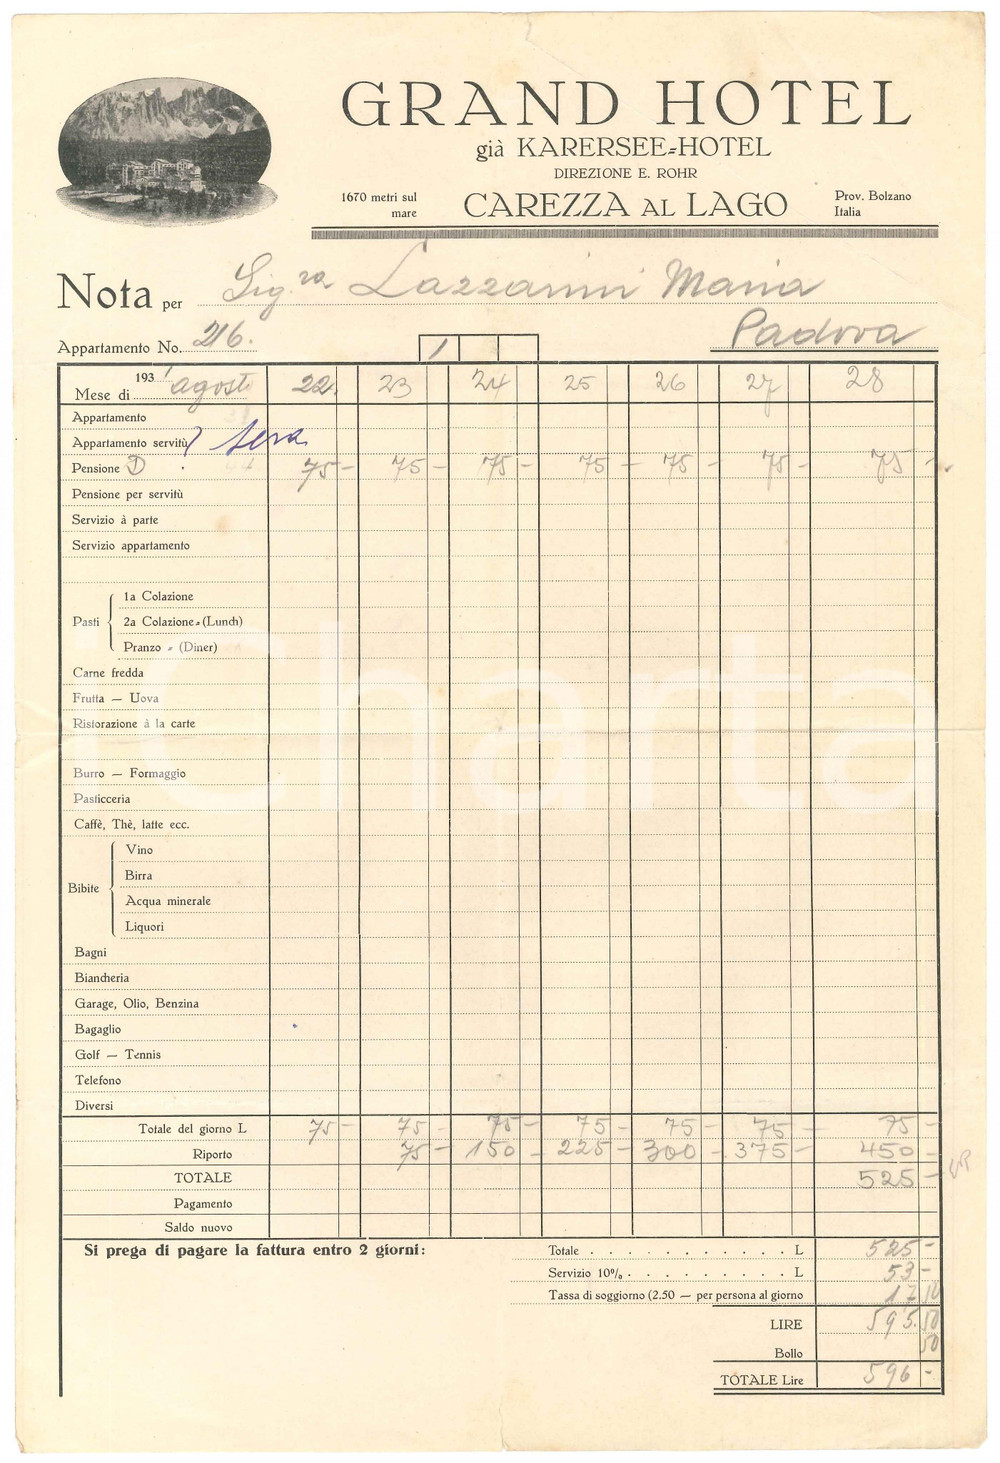 GRAND HOTEL
già KARERSEE-HOTEL
DIREZIONE E. ROHR
1670 metri sul mare
CAREZZA AL LAGO
Prov. Bolzano
Italia
Nota per Sig.ra Lazzarini Maria
Appartamento No. 216.
1
Padova
1931
Mese di agosto 22. 23 24 25 26 27 28
Appartamento
Appartamento servitù sera
Pensione D 75- 75- 75- 75- 75- 75- 75-
Pensione per servitù
Servizio à parte
Servizio appartamento
Pasti
1a Colazione
2a Colazione-(Lunch)
Pranzo - (Diner)
Carne fredda
Frutta — Uova
Ristorazione à la carte
Burro — Formaggio
Pasticceria
Caffè, Thè, latte ecc.
Bibite
Vino
Birra
Acqua minerale
Liquori
Bagni
Biancheria
Garage, Olio, Benzina
Bagaglio
Golf — Tennis
Telefono
Diversi
Totale del giorno L 75- 75- 75- 75- 75- 75- 75-
Riporto 75- 150- 225- 300- 375- 450-
TOTALE 525-
Pagamento
Saldo nuovo
Si prega di pagare la fattura entro 2 giorni:
Totale . . . . . . . . . . . L 525-
Servizio 10% . . . . . . . . . L 53-
Tassa di soggiorno (2.50 — per persona al giorno 17
LIRE 595.50
Bollo 50
TOTALE Lire 596-
iCharta